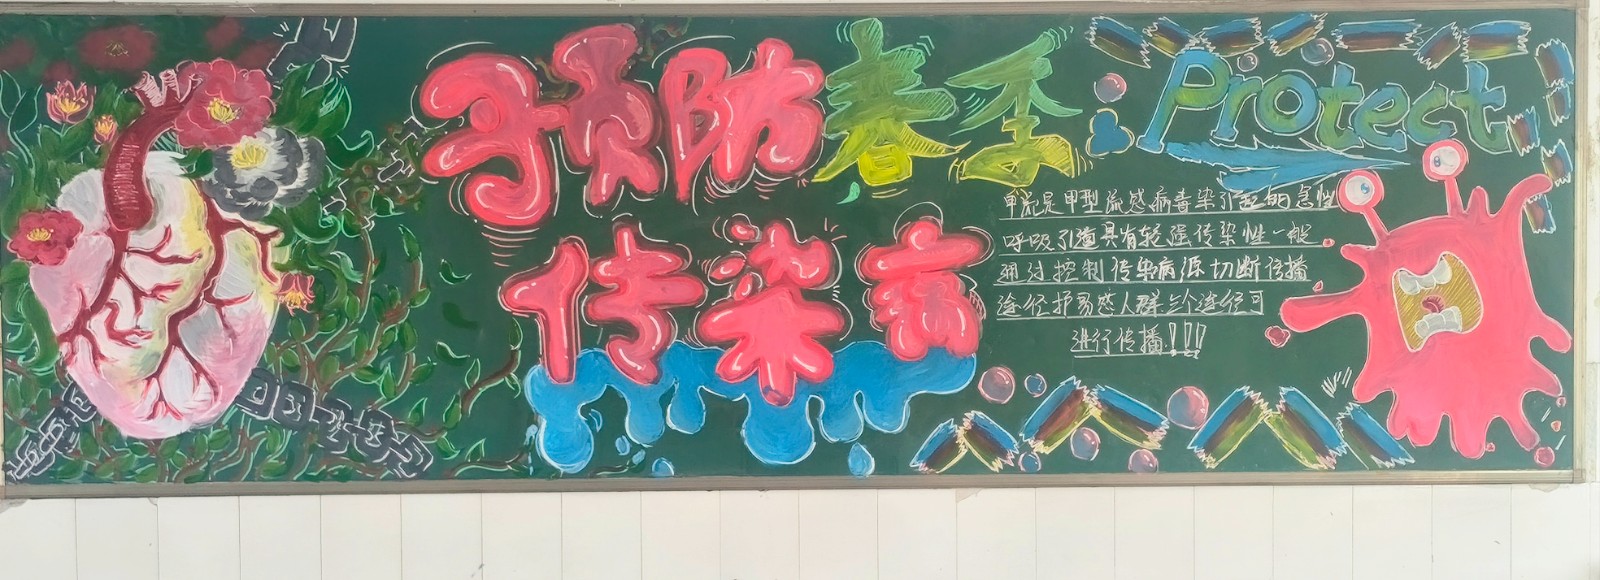 预防春季
传染病
Protect
甲流是甲型流感病毒染引起的急性
呼吸引道具有较强传染性一般
通过控制传染病源切断传播
途径护易感人群三个途径可
进行传播!!!